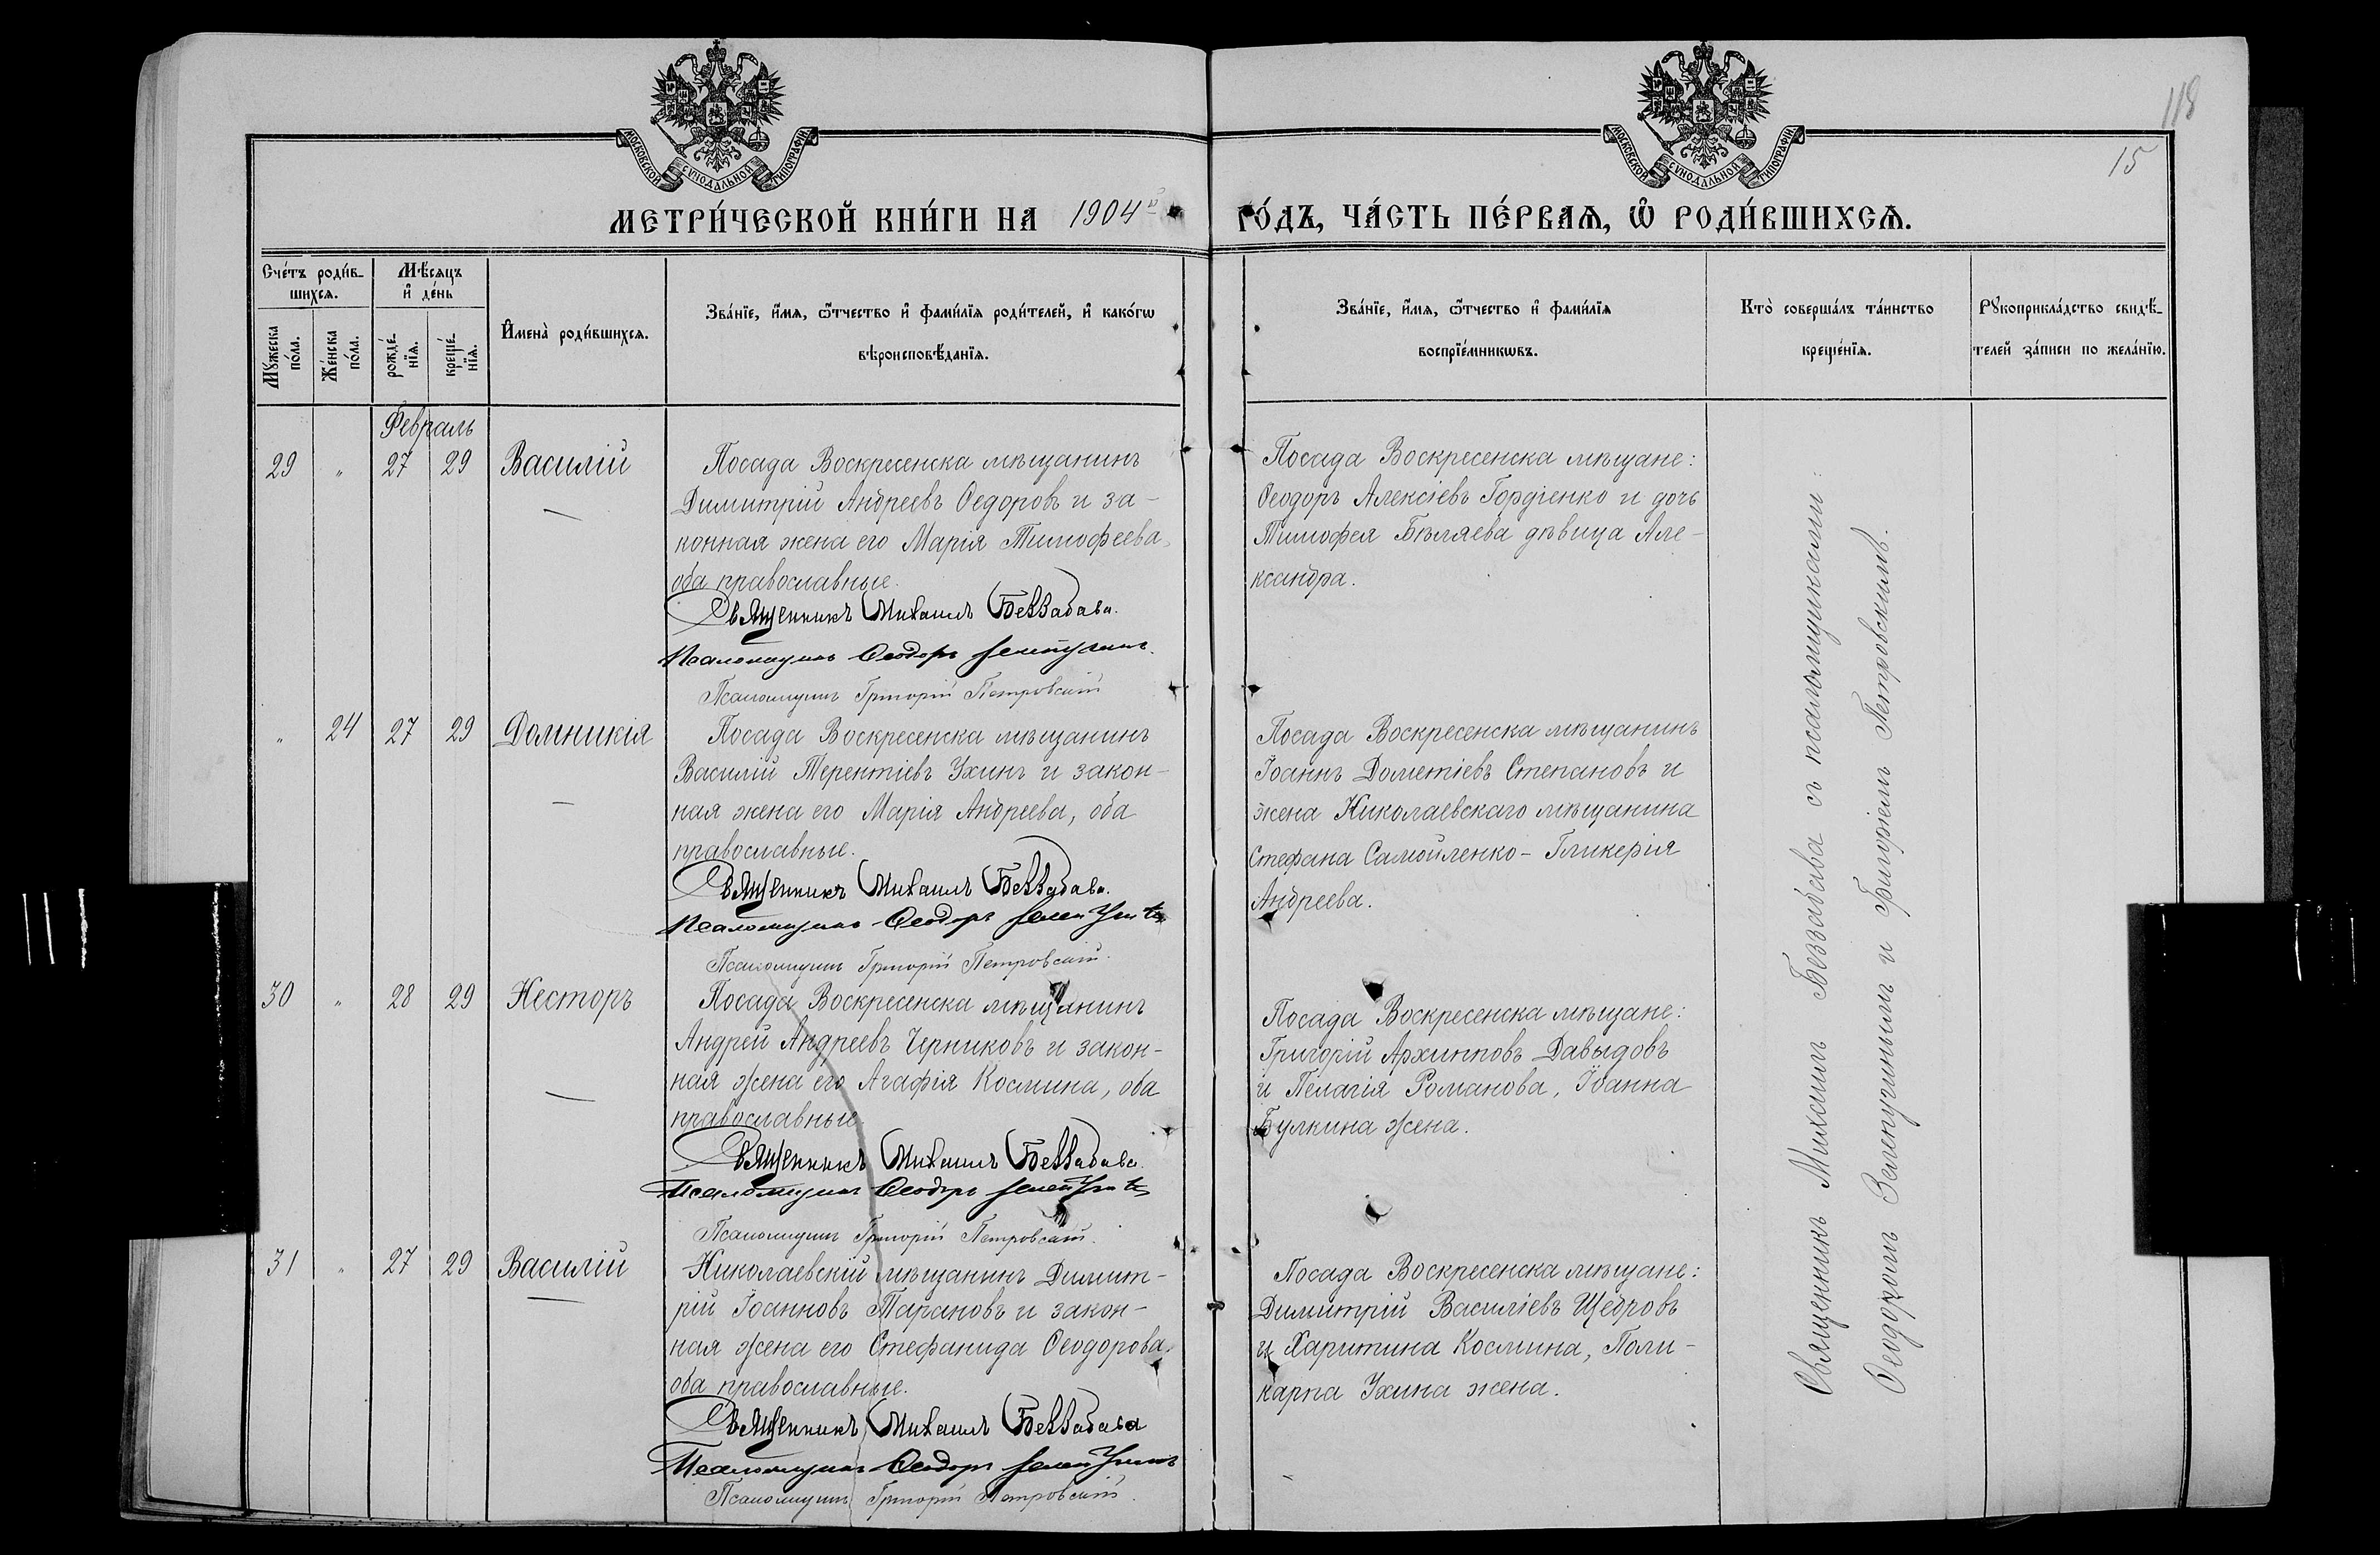 118
15
МОСКОВСКОЙ СѴНОДАЛЬНОЙ ТИПОГРАФІИ
МОСКОВСКОЙ СѴНОДАЛЬНОЙ ТИПОГРАФІИ
МЕТРИ́ЧЕСКОЙ КНИ́ГИ НА 1904й
ГО́ДЪ, ЧА́СТЬ ПЕ́РВАѦ, Ѽ РОДИ́ВШИХСѦ.
Сче́тъ роди́в-
шихсѧ.
Мꙋ́жеска по́ла.
Же́нска по́ла.
Мѣ́сѧцъ
и҆ де́нь
рожде́-
нїѧ.
креще́-
нїѧ.
И҆мена̀ роди́вшихсѧ.
Зва́нїе, и҆́мѧ, ѻ҆́тчество и҆ фами́лїѧ роди́телей, и҆ како́гѡ
вѣроисповѣ́данїѧ.
Зва́нїе, и҆́мѧ, ѻ҆́тчество и҆ фами́лїѧ
воспрїе́мникѡвъ.
Кто̀ соверша́лъ та́инство
креще́нїѧ.
Рꙋкоприкла́дство свидѣ́-
телей за́писи по жела́нїю.
Февраль
29 " 27 29 Василій
Посада Воскресенска мѣщанинъ
Димитрій Андреевъ Ѳедоровъ и за-
конная жена его Марія Тимофеева,
оба православные.
Священникъ Михаилъ Беззабава.
Псаломщикъ Ѳеодоръ Зелепугинъ.
Псаломщикъ Григорій Петровскій
Посада Воскресенска мѣщане:
Ѳеодоръ Алексіевъ Гордіенко и дочь
Тимофея Бѣляева дѣвица Але-
ксандра.
" 24 27 29 Домникія
Посада Воскресенска мѣщанинъ
Василій Терентіевъ Ухинъ и закон-
ная жена его Марія Андреева, оба
православные.
Священникъ Михаилъ Беззабава.
Псаломщикъ Ѳеодоръ Зелепугинъ
Псаломщикъ Григорій Петровскій.
Посада Воскресенска мѣщанинъ
Іоаннъ Дометіевъ Степановъ и
жена Николаевскаго мѣщанина
Стефана Самойленко - Гликерія
Андреева.
30 " 28 29 Несторъ
Посада Воскресенска мѣщанинъ
Андрей Андреевъ Черниковъ и закон-
ная жена его Агафія Космина, оба
православные.
Священникъ Михаилъ Беззабава.
Псаломщикъ Ѳеодоръ Зелепугинъ
Псаломщикъ Григорій Петровскій.
Посада Воскресенска мѣщане:
Григорій Архипповъ Давыдовъ
и Пелагія Романова, Іоанна
Булкина жена.
31 " 27 29 Василій
Николаевскій мѣщанинъ Димит-
рій Іоанновъ Тарановъ и закон-
ная жена его Стефанида Ѳеодорова,
оба православные.
Священникъ Михаилъ Беззабава
Псаломщикъ Ѳеодоръ Зелепугинъ
Псаломщикъ Григорій Петровскій.
Посада Воскресенска мѣщане:
Димитрій Василіевъ Щедровъ
и Харитина Космина, Поли-
карпа Ухина жена.
Священникъ Михаилъ Беззабава съ псаломщиками:
Ѳеодоромъ Зелепугинымъ и Григоріемъ Петровскимъ.